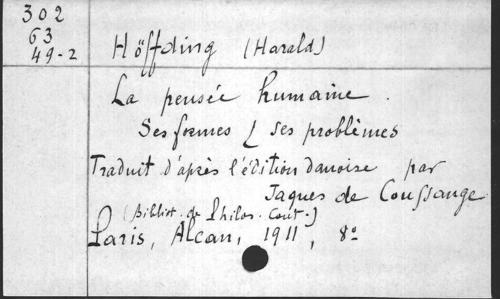 302
63
49-2
Höffding (Harald)
La pensée humaine.
Ses formes & ses problèmes
Traduit d'après l'édition danoise par
Jaques de Coussange
(Biblioth. de Philos. Cont.)
Paris, Alcan, 1911, 8º